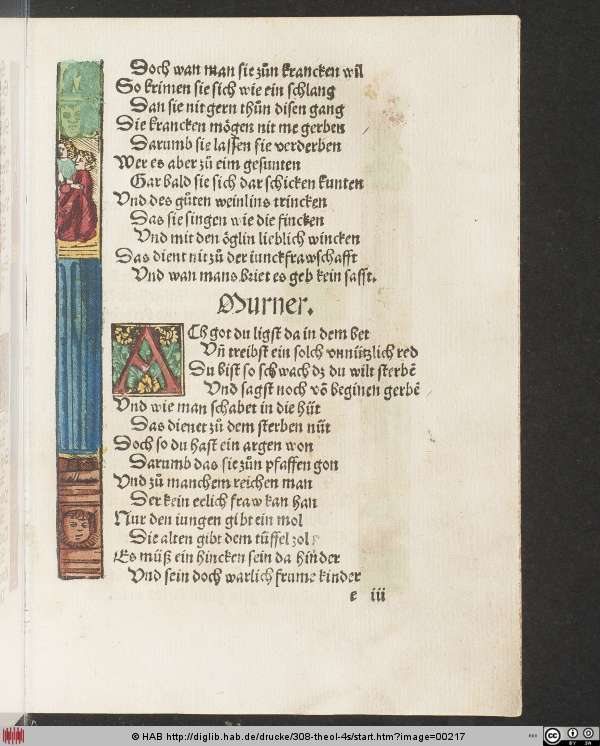 Doch wan man sie zůn krancken wil
So krimen sie sich wie ein schlang
Dan sie nit gern thůn disen gang
Die krancken mögen nit me gerben
Darumb sie lassen sie verderben
Wer es aber zů eim gesunten
Gar bald sie sich dar schicken kunten
Vnd des gůten weinlins trincken
Das sie singen wie die fincken
Vnd mit den öglin lieblich wincken
Das dient nit zů der iunckfrawschafft
Vnd wan mans briet es geb kein safft.
Murner.
ACh got du ligst da in dem bet
Vñ treibst ein solch vnnützlich red
Du bist so schwach dz du wilt sterbē
Vnd sagst noch võ beginen gerbē
Vnd wie man schabet in die hüt
Das dienet zů dem sterben nüt
Doch so du hast ein argen won
Darumb das sie zůn pfaffen gon
Vnd zů manchem reichen man
Der kein eelich fraw kan han
Nur den iungen gibt ein mol
Die alten gibt dem tüffel zol
Es můß ein hincken sein da hinder
Vnd sein doch warlich frume kinder
e iii
© HAB http://diglib.hab.de/drucke/308-theol-4s/start.htm?image=00217
cc
BY SA